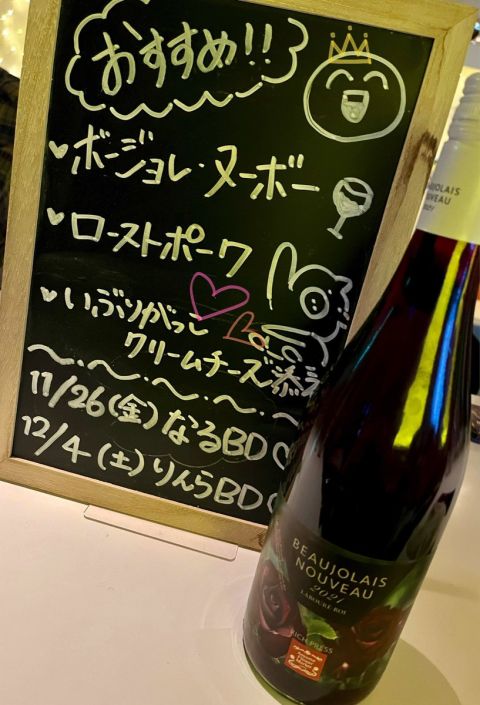 おすすめ!!
♥ボージョレ・ヌーボー
♥ローストポーク
♥いぶりがっこ
クリームチーズ添え
〜・〜・〜・〜・〜
11/26(金)なるBD♡
12/4(土)りんらBD♡
BEAUJOLAIS
NOUVEAU
2021
BEAUJOLAIS
NOUVEAU
2021
LABOURE ROI
RICH PRESS